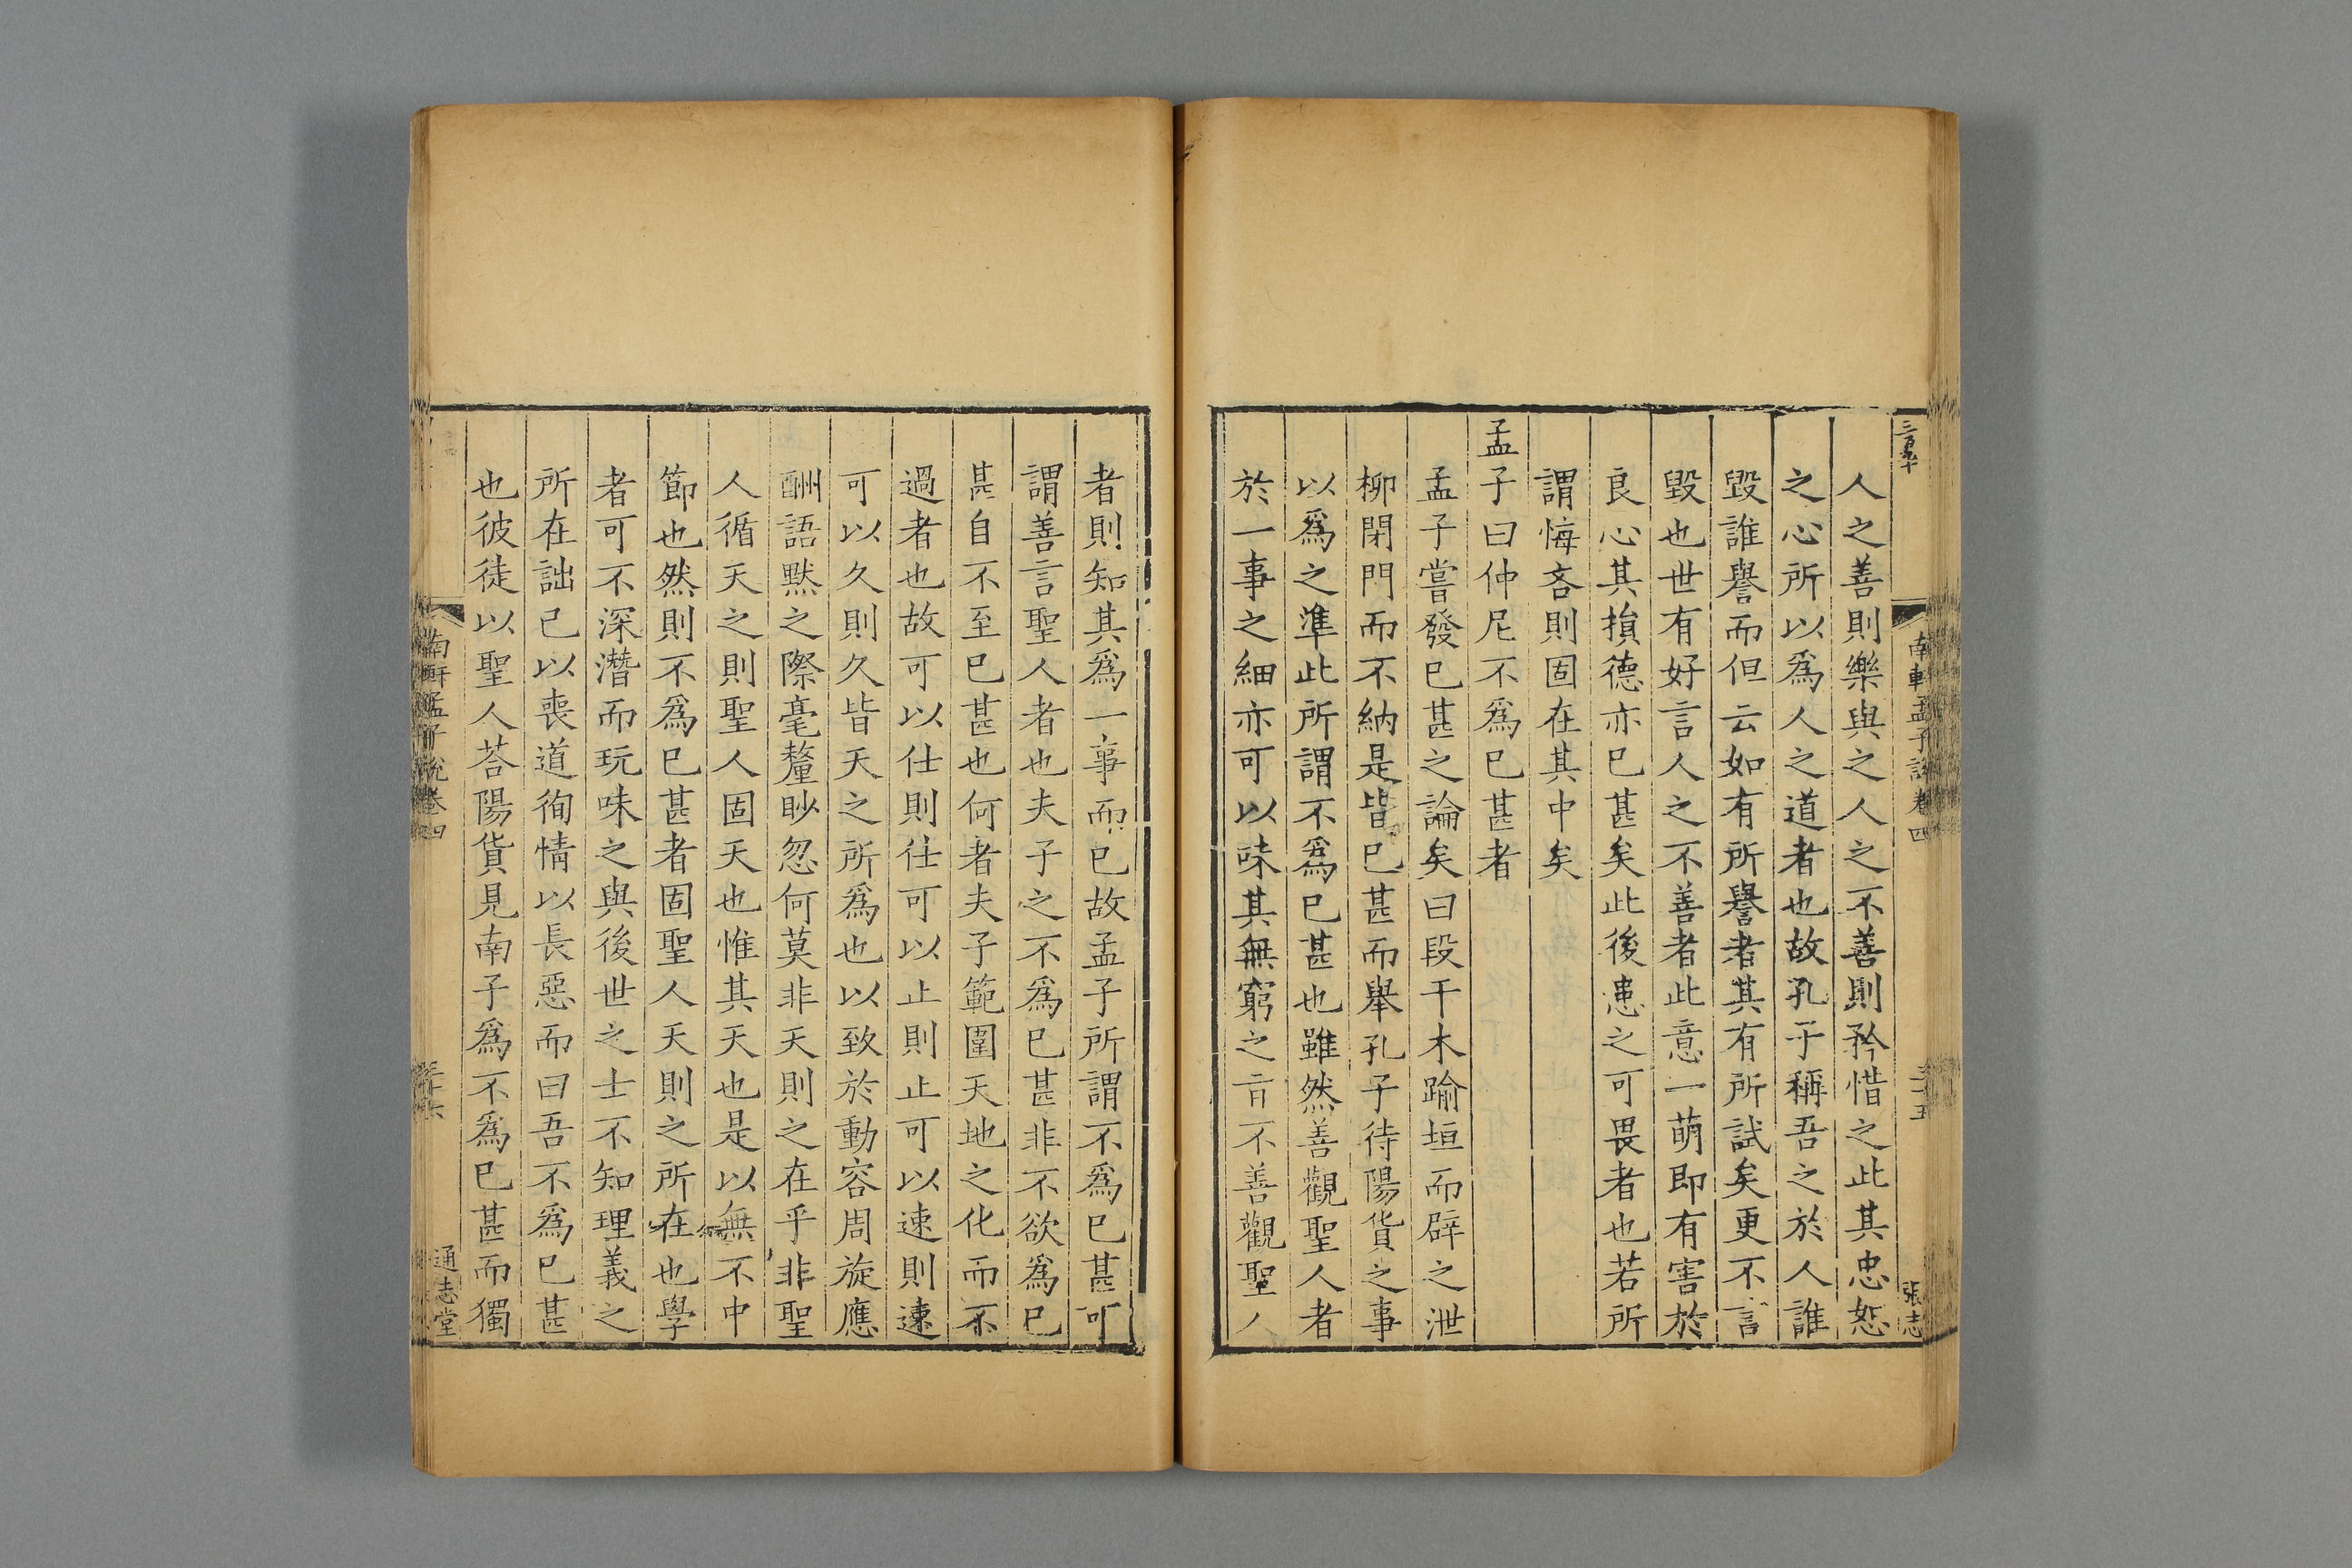 南軒孟子說卷四
張志
人之善則樂與之人之不善則矜惜之此其忠恕
之心所以爲人之道者也故孔子稱吾之於人誰
毀誰譽而但云如有所譽者其有所試矣更不言
毀也世有好言人之不善者此意一萌即有害於
良心其損德亦已甚矣此後患之可畏者也若所
謂悔吝則固在其中矣
孟子曰仲尼不爲已甚者
孟子嘗發已甚之論矣曰段干木踰垣而辟之泄
柳閉門而不納是皆已甚而舉孔子待陽貨之事
以爲之準此所謂不爲已甚也雖然善觀聖人者
於一事之細亦可以味其無窮之旨不善觀聖人
者則知其爲一事而已故孟子所謂不爲已甚可
謂善言聖人者也夫子之不爲已甚非不欲爲已
甚自不至已甚也何者夫子範圍天地之化而不
過者也故可以仕則仕可以止則止可以速則速
可以久則久皆天之所爲也以致於動容周旋應
酬語默之際毫釐眇忽何莫非天則之在乎非聖
人循天之則聖人固天也惟其天也是以無不中
節也然則不爲已甚者固聖人天則之所在也學
者可不深潛而玩味之與後世之士不知理義之
所在詘已以喪道徇情以長惡而曰吾不爲已甚
也彼徒以聖人荅陽貨見南子爲不爲已甚而獨
南軒孟子說卷四
通志堂